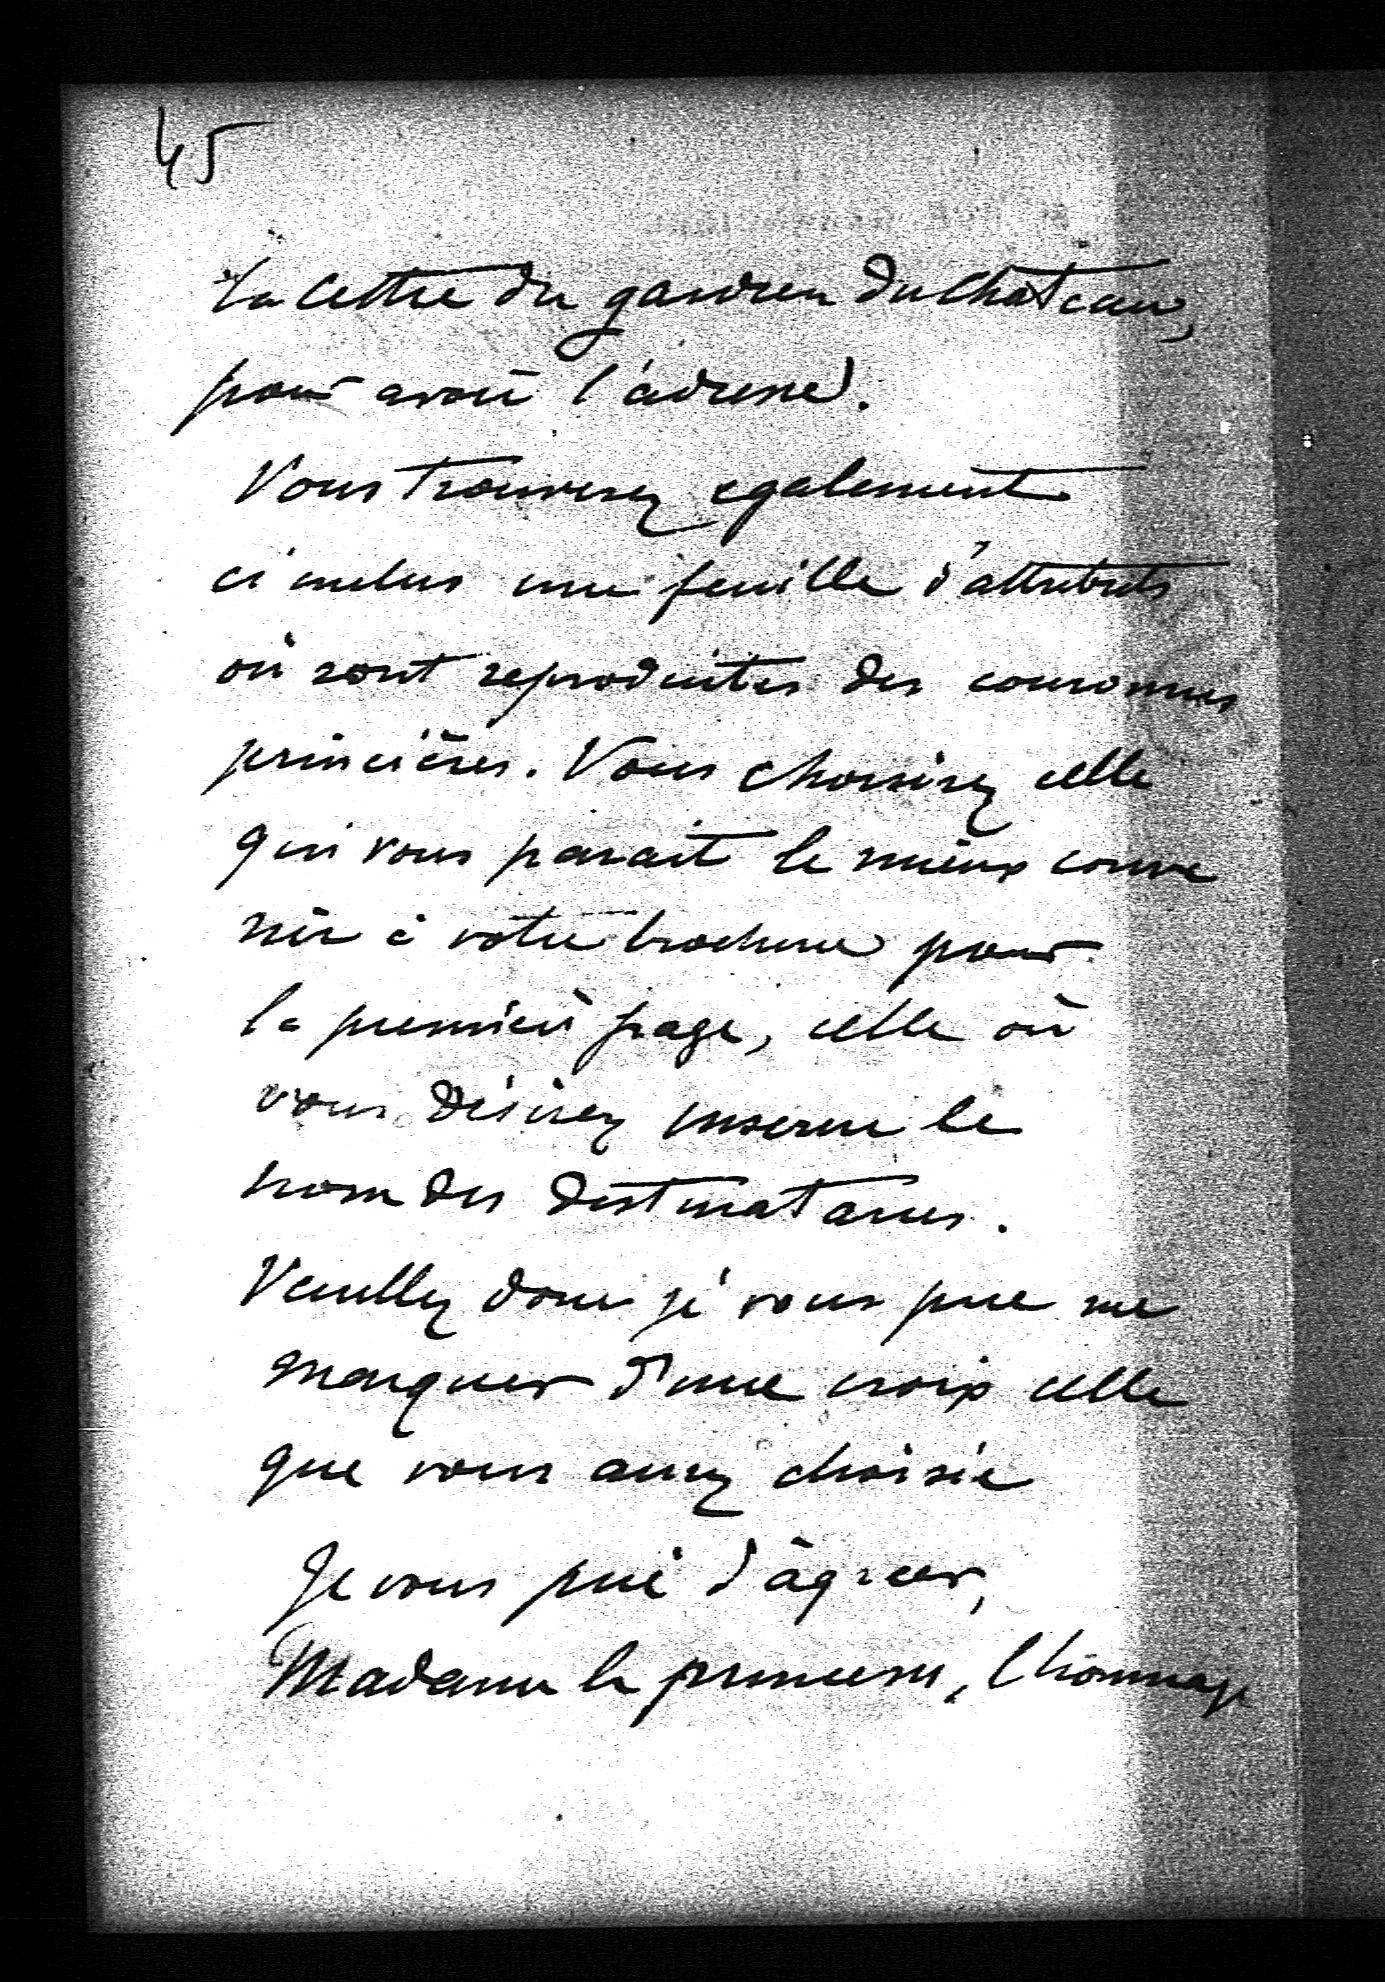 45
la lettre du gardien du chateau,
pour avoir l'adresse.
Vous trouverez egalement
ci inclus une feuille d'attributs
où sont reproduites des couronnes
princières. Vous choisirez celle
qui vous parait le mieux conve
nir à votre brochure pour
la premièr page, celle où
vous désirez inserer le
nom des destinataires.
Veuillez donc je vous prie me
marquer d'une croix celle
que vous aurez choisie
Je vous prie d'àgréer,
Madame la princesse, l'hommage